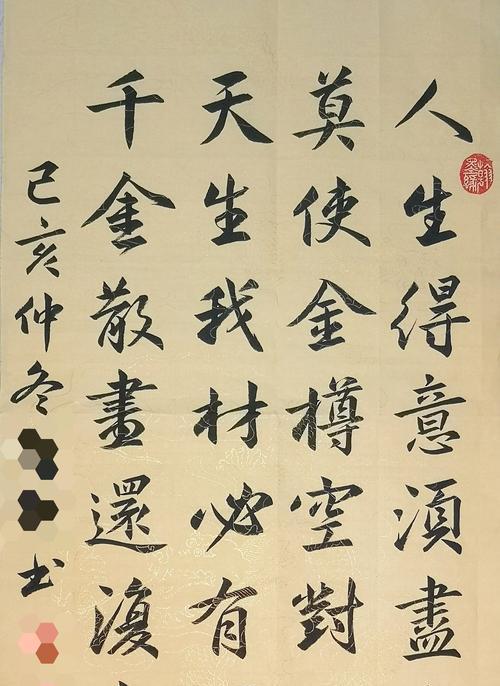 人生得意須盡
莫使金樽空對
天生我材必有
千金散畫還復
己亥仲冬
书